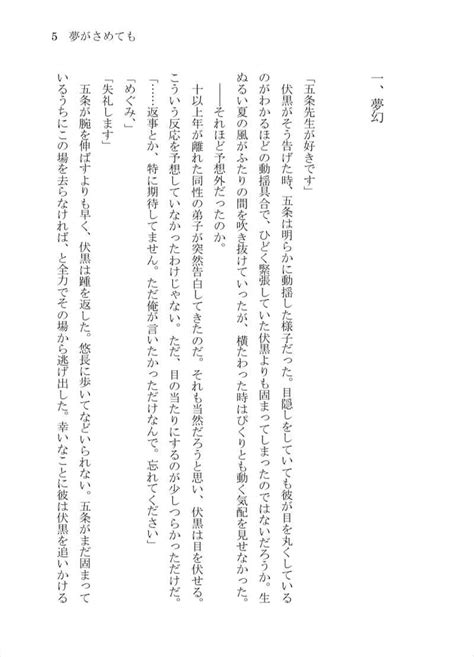 5　夢がさめても
一、夢幻
「五条先生が好きです」
　伏黒がそう告げた時、五条は明らかに動揺した様子だった。目隠しをしていても彼が目を丸くしている
のがわかるほどの動揺具合で、ひどく緊張していた伏黒よりも固まってしまったのではないだろうか。生
ぬるい夏の風がふたりの間を吹き抜けていったが、横たわった時はぴくりとも動く気配を見せなかった。
　――それほど予想外だったのか。
　十以上年が離れた同性の弟子が突然告白してきたのだ。それも当然だろうと思い、伏黒は目を伏せる。
こういう反応を予想していなかったわけじゃない。ただ、目の当たりにするのが少しつらかっただけだ。
「……返事とか、特に期待してません。ただ俺が言いたかっただけなんで。忘れてください」
「めぐみ、」
「失礼します」
　五条が腕を伸ばすよりも早く、伏黒は踵を返した。悠長に歩いてなどいられない。五条がまだ固まって
いるうちにこの場を去らなければ、と全力でその場から逃げ出した。幸いなことに彼は伏黒を追いかける